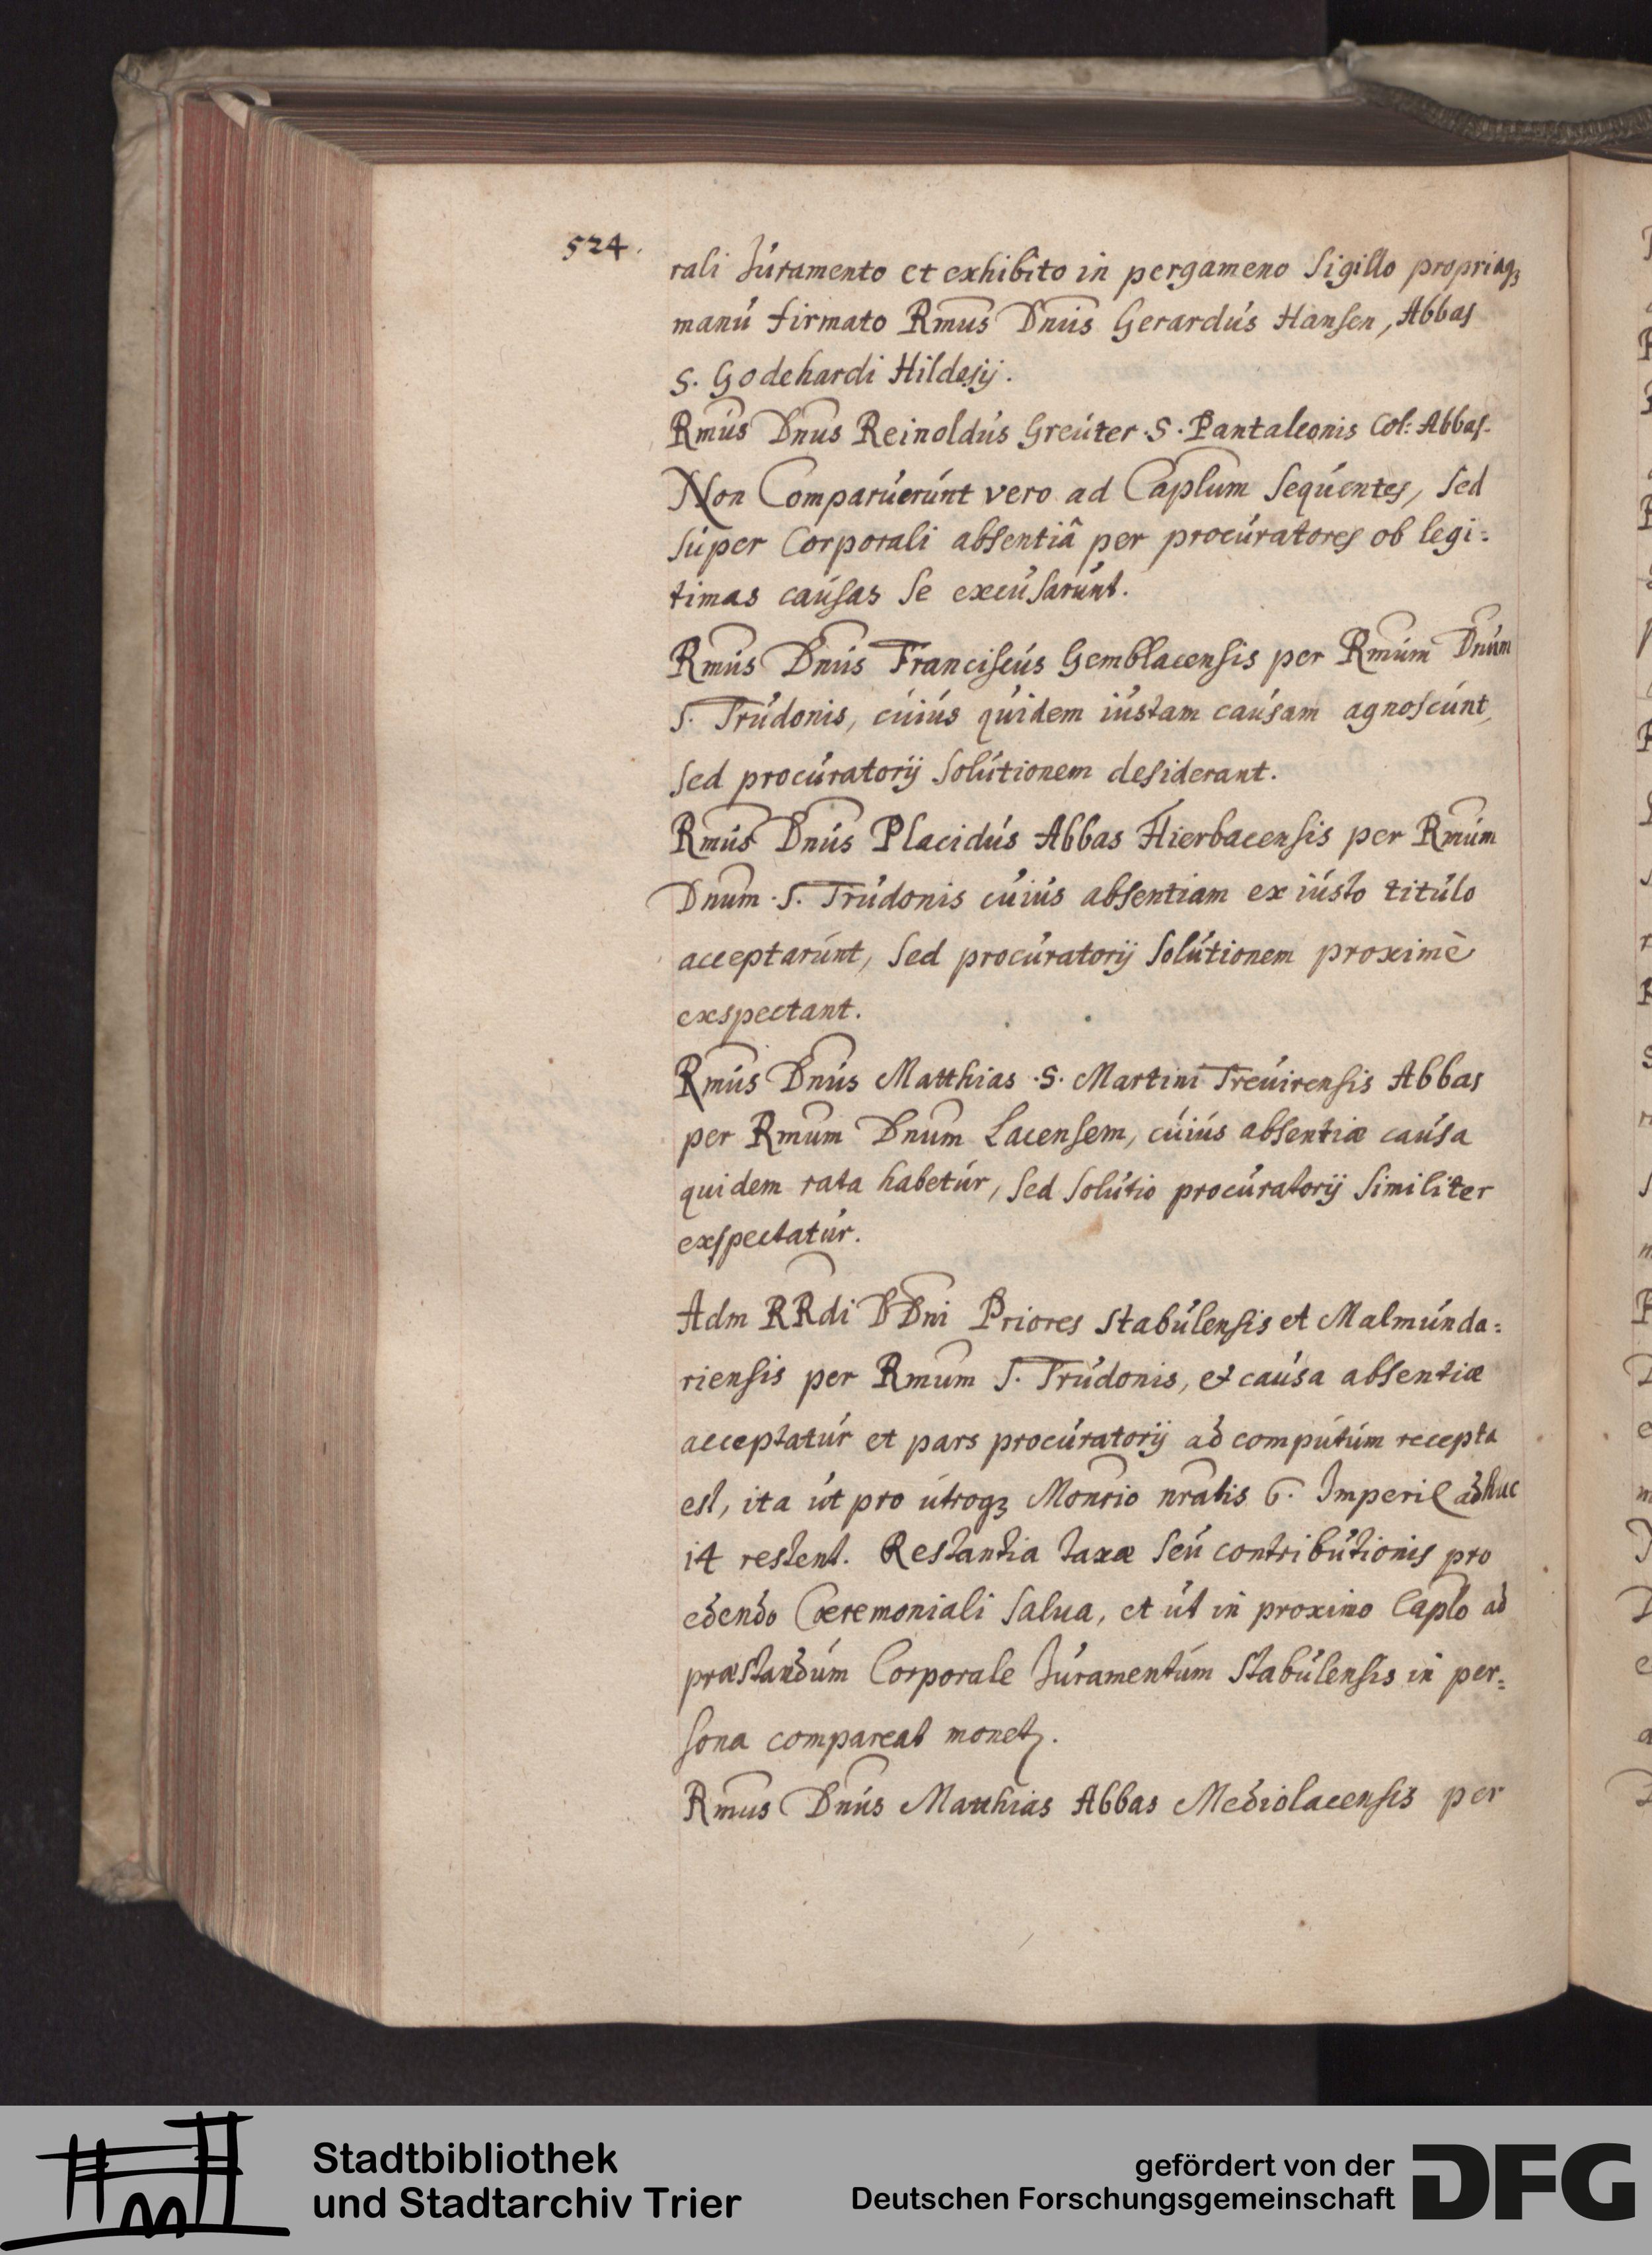 524.
rali Juramento et exhibito in pergameno Sigillo propriaqȝ
manu firmato Rmus Dnus Gerardus Hansen, Abbas
S. Godehardi Hildesij.
Rmus Dnus Reinoldus Greuter S. Pantaleonis Col: Abbas.
Non Comparuerunt vero ad Caplum sequentes, sed
super Corporali absentiâ per procuratores ob legi:
timas causas se excusarunt.
Rmus Dnus Franciscus Gemblacensis per Rmum Dnum
S. Trudonis, cuius quidem iustam causam agnoscunt,
sed procuratorij solutionem desiderant.
Rmus Dnus Placidus Abbas Hierbacensis per Rmum
Dnum S. Trudonis cuius absentiam ex iusto titulo
acceptarunt, sed procuratorij solutionem proximè
exspectant.
Rmus Dnus Matthias S. Martini Treuirensis Abbas
per Rmum Dnum Lacensem, cuius absentiæ causa
quidem rata habetur, sed solutio procuratorij similiter
exspectatur.
Adm RRdi DDni Priores Stabulensis et Malmunda:
riensis per Rmum S. Trudonis, et causa absentiæ
acceptatur et pars procuratorij ad computum recepta
est, ita ut pro utroqȝ Monrio nratis 6. Imperil adhuc
14 restent. Restantia taxæ seu contributionis pro
edendo Cæremoniali salua, et ut in proximo Caplo ad
præstandum Corporale Juramentum Stabulensis in per:
sona compareat monetȝ.
Rmus Dnus Matthias Abbas Mediolacensis per
Stadtbibliothek
und Stadtarchiv Trier
gefördert von der
Deutschen Forschungsgemeinschaft
DFG